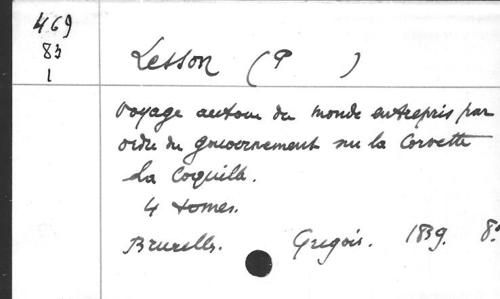 469
83
1
Lesson (P )
Voyage autour du monde entrepris par
ordre du gouvernement sur la Corvette
La Coquille.
4 tomes.
Bruxelles. Gregoir. 1839. 8°